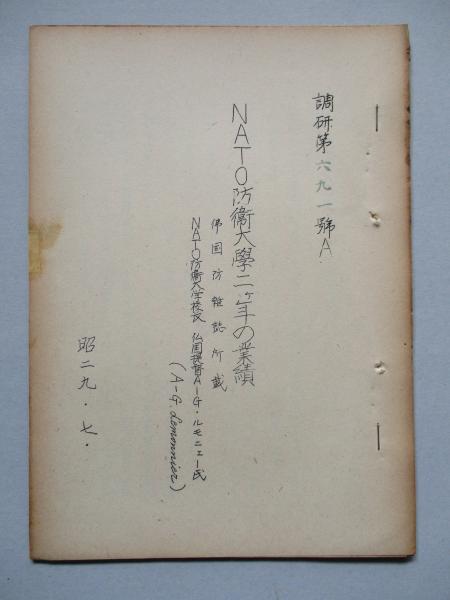 調研第六九一號A
NATO防衞大學二ヶ年の業績
佛国防雑誌所載
NATO防衞大学校長 仏国提督A-G・ルモニエー氏
(A-G. Lemonnier)
昭二九・七・